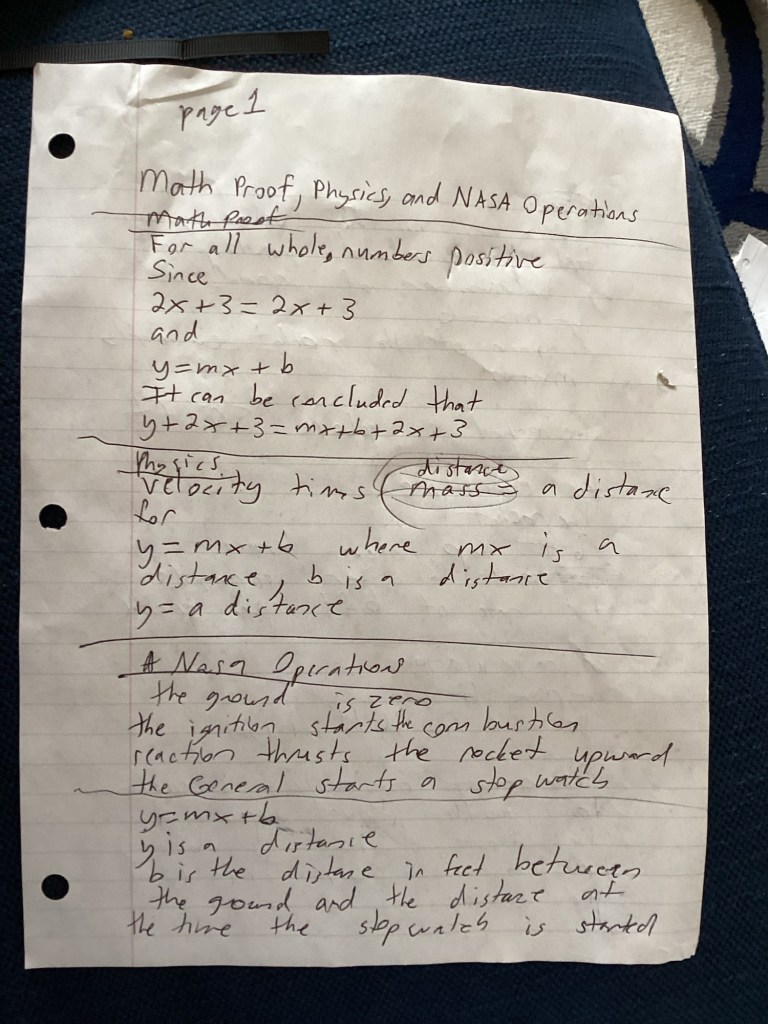 page 1
Math Proof, Physics, and NASA Operations
Math Proof
For all whole, numbers positive
Since
2x + 3 = 2x + 3
and
y = mx + b
It can be concluded that
y + 2x + 3 = mx + b + 2x + 3
Physics
distance
velocity times mass = a distance
for
y = mx + b where mx is a
distance, b is a distance
y = a distance
A Nasa Operations
the ground is zero
the ignition starts the combustion
reaction thrusts the rocket upward
the General starts a stop watch
y = mx + b
y is a distance
b is the distane in feet between
the ground and the distaze at
the time the stopwatch is started